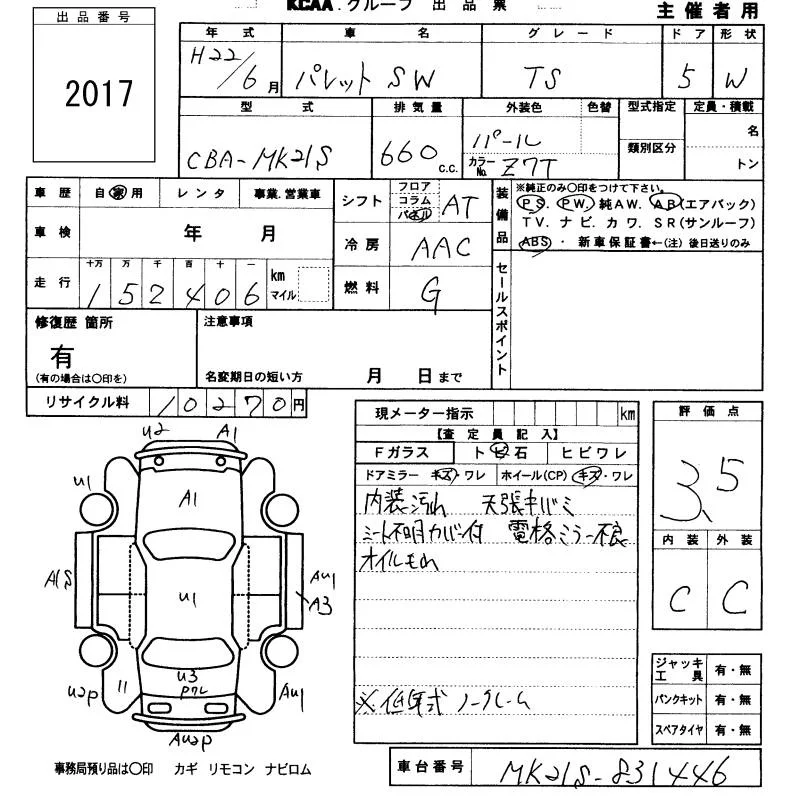 KCAA.グループ 出品票
主催者用
出品番号
2017
年式 車名 グレード ドア 形状
H22/6月 パレット SW TS 5 W
型式 排気量 外装色 色替 型式指定 定員・積載
CBA-MK21S 660 c.c. パール カラーNo. Z7T 類別区分 名 トン
車歴 自家用 レンタ 事業.営業車
車検 年 月
走行 十万 万 千 百 十 一
152406 km マイル
シフト フロア コラム パネル AT
冷房 AAC
燃料 G
装備品
※純正のみ〇印をつけて下さい。
PS. PW. 純AW. AB(エアバック)
TV. ナビ. カワ. SR(サンルーフ)
ABS・新車保証書←(注)後日送りのみ
セールスポイント
修復歴 箇所
有
(有の場合は〇印を)
注意事項
名変期日の短い方 月 日まで
リサイクル料 10270円
現メーター指示 km
【査定員記入】
Fガラス トビ石 ヒビワレ
ドアミラー キズ・ワレ ホイール(CP) キズ・ワレ
内装汚れ 天張キバミ
シート不明カバー付 電格ミラー不良
オイルもれ
※低年式 ノークレーム
評価点
3.5
内装 外装
C C
ジャッキ工具 有・無
パンクキット 有・無
スペアタイヤ 有・無
U2 A1
U1 A1
A1S U1 AU1
A3
U3
U2P AU1
AU2P
事務局預り品は〇印 カギ リモコン ナビロム
車台番号 MK21S-831446